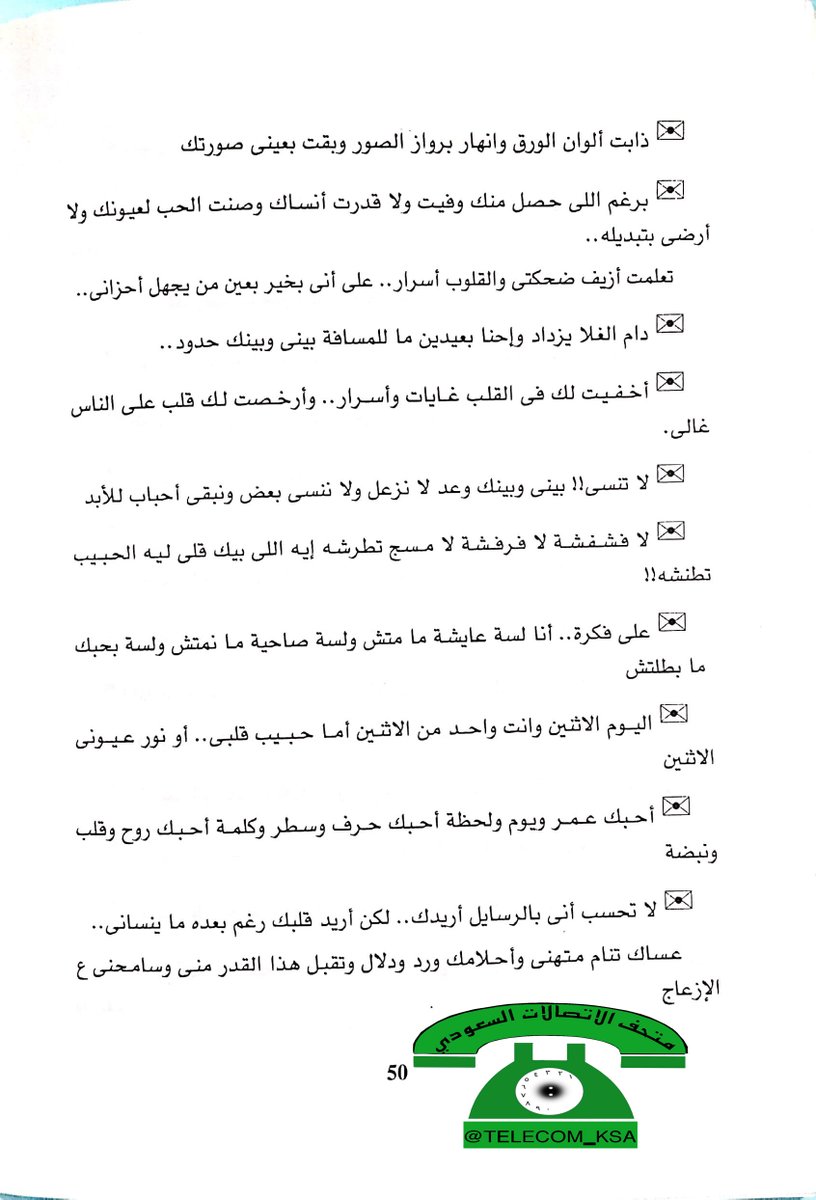 ذابت ألوان الورق وانهار برواز الصور وبقت بعينى صورتك
برغم اللى حصل منك وفيت ولا قدرت أنساك وصنت الحب لعيونك ولا
أرضى بتبديله..
تعلمت أزيف ضحكتى والقلوب أسرار.. على أنى بخير بعين من يجهل أحزانى..
دام الغلا يزداد وإحنا بعيدين ما للمسافة بينى وبينك حدود..
أخفيت لك فى القلب غايات وأسرار.. وأرخصت لك قلب على الناس
غالى.
لا تنسى!! بينى وبينك وعد لا نزعل ولا ننسى بعض ونبقى أحباب للأبد
لا فشفشة لا فرفشة لا مسج تطرشه إيه اللى بيك قلى ليه الحبيب
تطنشه!!
على فكرة.. أنا لسة عايشة ما متش ولسة صاحية ما نمتش ولسة بحبك
ما بطلتش
اليوم الاثنين وانت واحد من الاثنين أما حبيب قلبى.. أو نور عيونى
الاثنين
أحبك عمر ويوم ولحظة أحبك حرف وسطر وكلمة أحبك روح وقلب
ونبضة
لا تحسب أنى بالرسايل أريدك.. لكن أريد قلبك رغم بعده ما ينسانى..
عساك تنام متهنى وأحلامك ورد ودلال وتقبل هذا القدر منى وسامحنى ع
الإزعاج
متحف الاتصالات السعودي
50
@TELECOM_KSA